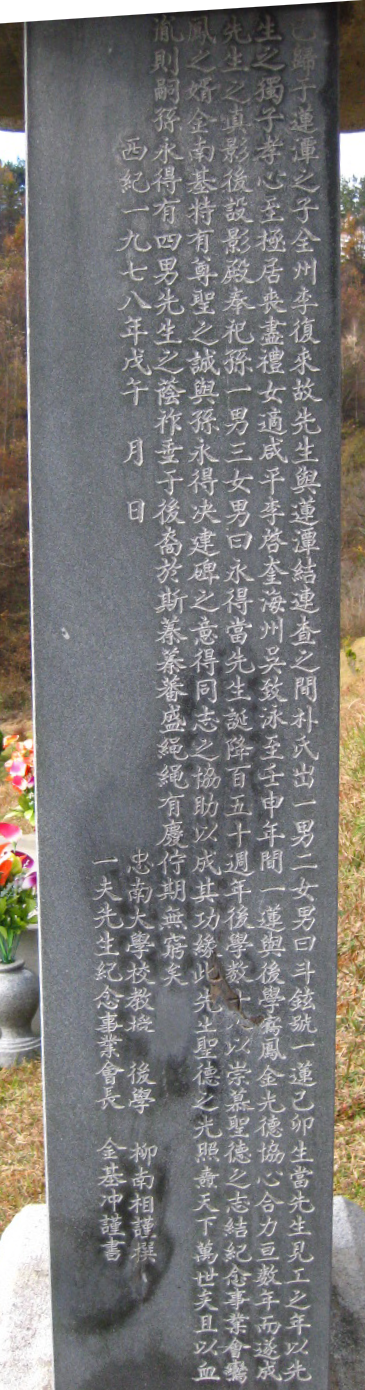 己歸于蓮潭之子全州李復來故先生與蓮潭結連查之間朴氏出一男二女男曰斗鉉號一蓮己卯生當先生見工之年以先
生之獨子孝心至極居喪盡禮女適咸平李啓奎海州吳致泳至壬申年間一蓮與後學鸞鳳金光德協心合力亘數年而遂成
先生之眞影後設影殿奉祀孫一男三女男曰永得當先生誕降百五十週年後學数十 以崇慕聖德之志結紀念事業會鸞
鳳之婿金南基特有尊聖之誠與孫永得决建碑之意得同志之協助以成其功緣此先生聖德之光照燾天下萬世矣且以血
胤則嗣孫永得有四男先生之蔭祚垂于後裔於斯蓁蓁蕃盛繩繩有慶佇期無窮矣
西紀一九七八年戊午 月 日
忠南大學校教授 後學 柳南相謹撰
一夫先生紀念事業會長 金基冲謹書